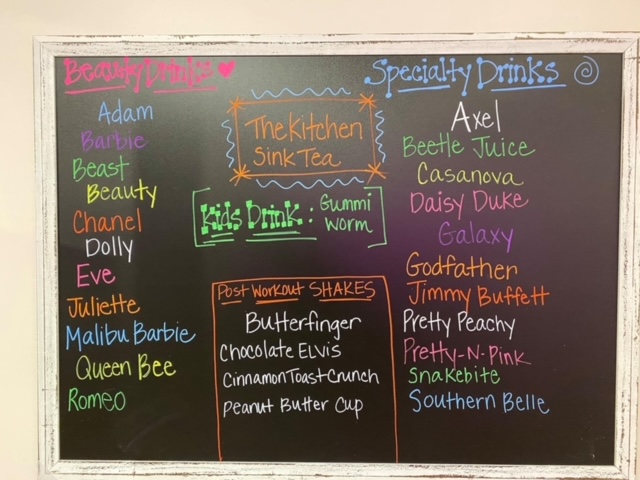 Beauty Drinks
Adam
Barbie
Beast
Beauty
Chanel
Dolly
Eve
Juliette
Malibu Barbie
Queen Bee
Romeo
The Kitchen
Sink Tea
Kids Drink: Gummi
Worm
Post Workout SHAKES
Butterfinger
Chocolate ELVIS
Cinnamon Toast Crunch
Peanut Butter Cup
Specialty Drinks
Axel
Beetle Juice
Casanova
Daisy Duke
Galaxy
Godfather
Jimmy Buffett
Pretty Peachy
Pretty-N-Pink
Snakebite
Southern Belle